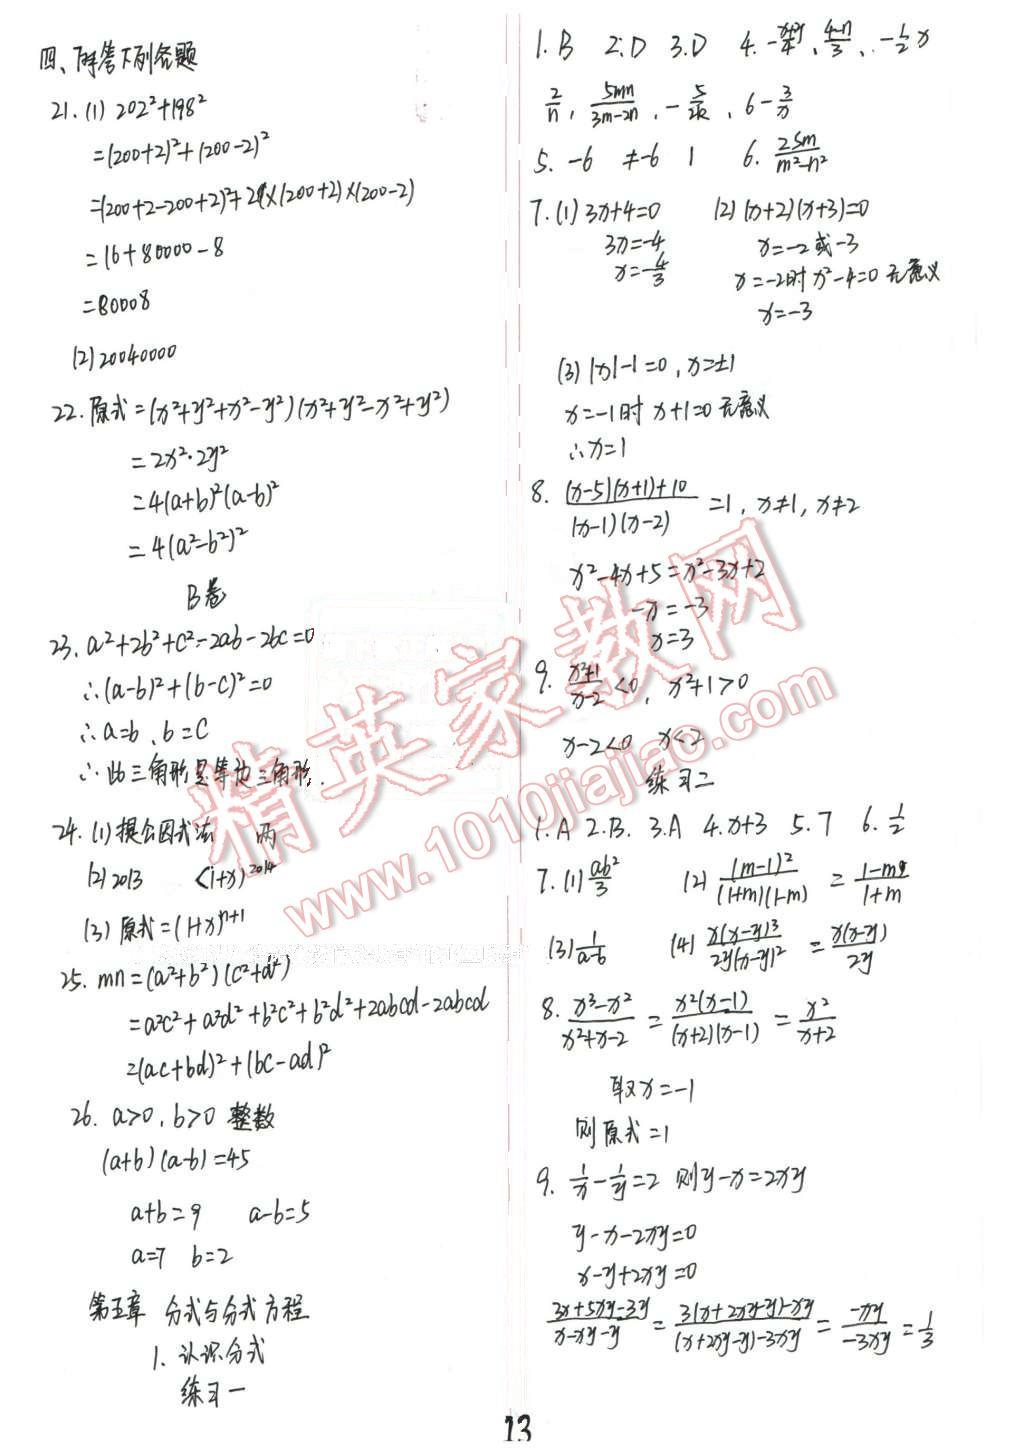 四、解答下列各题
21.(1) 202²+198²
=(200+2)²+(200-2)²
=(200+2-200+2)²+2×(200+2)×(200-2)
=16+80000-8
=80008
(2)20040000
22.原式=(x²+y²+x²-y²)(x²+y²-x²+y²)
=2x²·2y²
=4(a+b)²(a-b)²
=4(a²-b²)²
B卷
23. a²+2b²+c²-2ab-2bc=0
∴(a-b)²+(b-c)²=0
∴a=b、b=c
∴此三角形是等边三角形.
24.(1)提公因式法 两
(2)2013 (1+x)^2014
(3)原式=(1+x)^n+1
25. mn=(a²+b²)(c²+d²)
=a²c²+a²d²+b²c²+b²d²+2abcd-2abcd
=(ac+bd)²+(bc-ad)²
26. a>0, b>0 整数
(a+b)(a-b)=45
a+b=9 a-b=5
a=7 b=2
第五章 分式与分式方程
1. 认识分式
练习一
1.B 2.D 3.D 4. 4-n/3、-1/2x
2/n, 5mn/3m-2n, -5/2k, 6-3/x
5. -6 ≠-6 1 6. 25m/m²-n²
7.(1) 3x+4=0 (2)(x+2)(x+3)=0
3x=-4 x=-2或-3
x=-4/3 x=-2时 x²-4=0 无意义
x=-3
(3)|x|-1=0, x=±1
x=-1时 x+1=0 无意义
∴x=1
8. (x-5)(x+1)+10/(x-1)(x-2) =1, x≠1, x≠2
x²-4x+5=x²-3x+2
-x=-3
x=3
9. x²+1/x-2<0, x²+1>0
x-2<0 x<2
练习二
1.A 2.B. 3.A 4.x+3 5.7 6.1/2
7.(1) ab²/3 (2) (m-1)²/(1+m)(1-m) = 1-m/1+m
(3) 1/a-b (4) x(x-y)³/2y(x-y)² = x(x-y)/2y
8. x³-x²/x²+x-2 = x²(x-1)/(x+2)(x-1) = x²/x+2
取x=-1
则原式=1
9. 1/x-1/y=2 则y-x=2xy
y-x-2xy=0
x-y+2xy=0
3x+5xy-3y/x-xy-y = 3(x+2xy-y)-xy/(x+2xy-y)-3xy = -xy/-3xy = 1/3
13
精英家教网
www.1010jiajiao.com